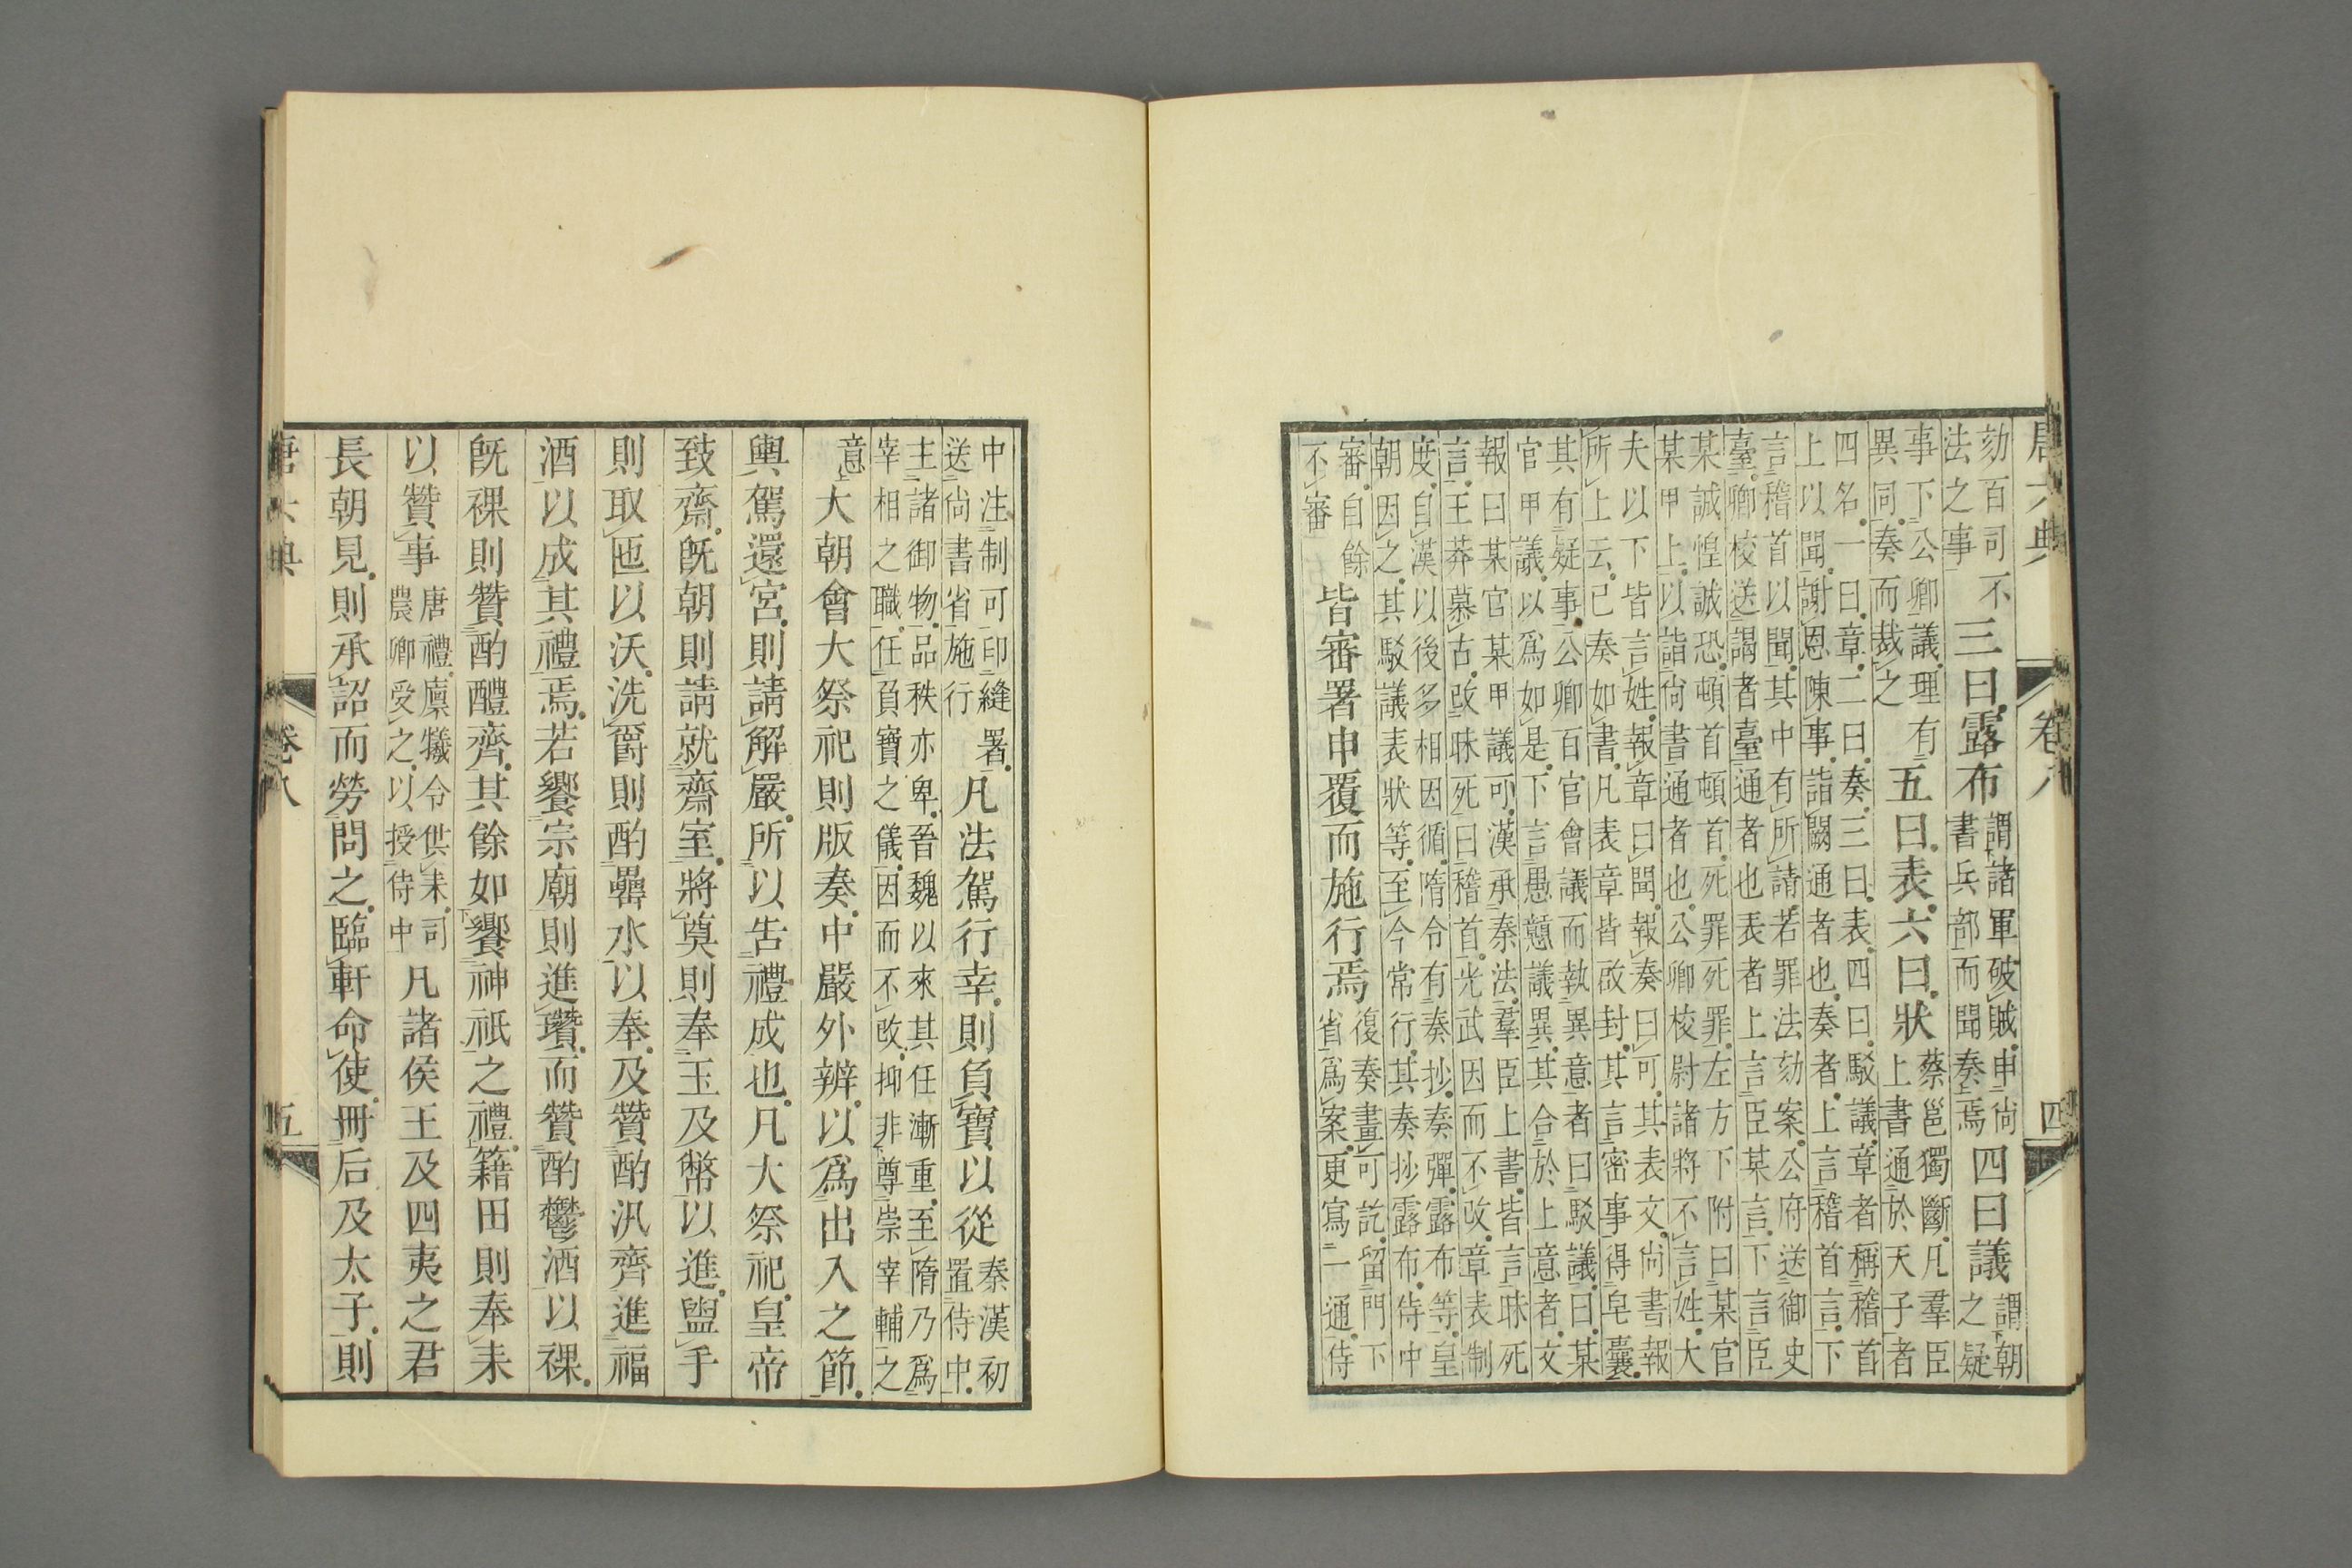 唐六典 卷八 四
劾百司不
法之事
三曰露布
謂諸軍破賊申尚
書兵部而聞奏焉
四曰議
謂朝
之疑
事下公卿議理有
異同奏而裁之
五曰表六曰狀
蔡邕獨斷凡羣臣
上書通於天子者
四名一曰章二曰奏三曰表四曰駁議章者稱稽首
上以聞謝恩陳事詣闕通者也奏者上言稽首言下
言稽首以聞其中有所請若罪法劾案公府送御史
臺卿校送謁者臺通者也表者上言臣某言下言臣
某誠惶誠恐頓首頓首死罪死罪左方下附曰某官
某甲上以詣尚書通者也公卿校尉諸將不言姓大
夫以下皆言姓報章曰聞報奏曰可其表文尚書報
所上云已奏如書凡表章皆啟封其言密事得皂囊
其有疑事公卿百官會議而執異意者曰駁議曰某
官甲議以爲如是下言愚戇議異其合於上意者文
報曰某官某甲議可漢承秦法羣臣上書皆言昧死
言王莽慕古改昧死曰稽首光武因而不改章表制
度自漢以後多相因循隋令有奏抄奏彈露布等皇
朝因之其駁議表狀等至今常行其奏抄露布侍中
審自餘
不審
皆審署申覆而施行焉
復奏畫可訖留門下
省爲案更寫一通侍
中注制可印縫署
送尚書省施行
凡法駕行幸則負寶以從
秦漢初
置侍中
主諸御物品秩亦卑晉魏以來其任漸重至隋乃爲
宰相之職任負寶之儀因而不改抑非尊崇宰輔之
意
大朝會大祭祀則版奏中嚴外辦以爲出入之節
輿駕還宮則請解嚴所以告禮成也凡大祭祀皇帝
致齋旣朝則請就齋室將奠則奉玉及幣以進盥手
則取匜以沃洗爵則酌罍水以奉及贊酌汎齊進福
酒以成其禮焉若饗宗廟則進瓚而贊酌鬱酒以祼
旣祼則贊酌醴齊其餘如饗神祇之禮籍田則奉耒
以贊事
唐禮廩犧令供耒司
農卿受之以授侍中
凡諸侯王及四夷之君
長朝見則承詔而勞問之臨軒命使冊后及太子則
唐六典 卷八 五